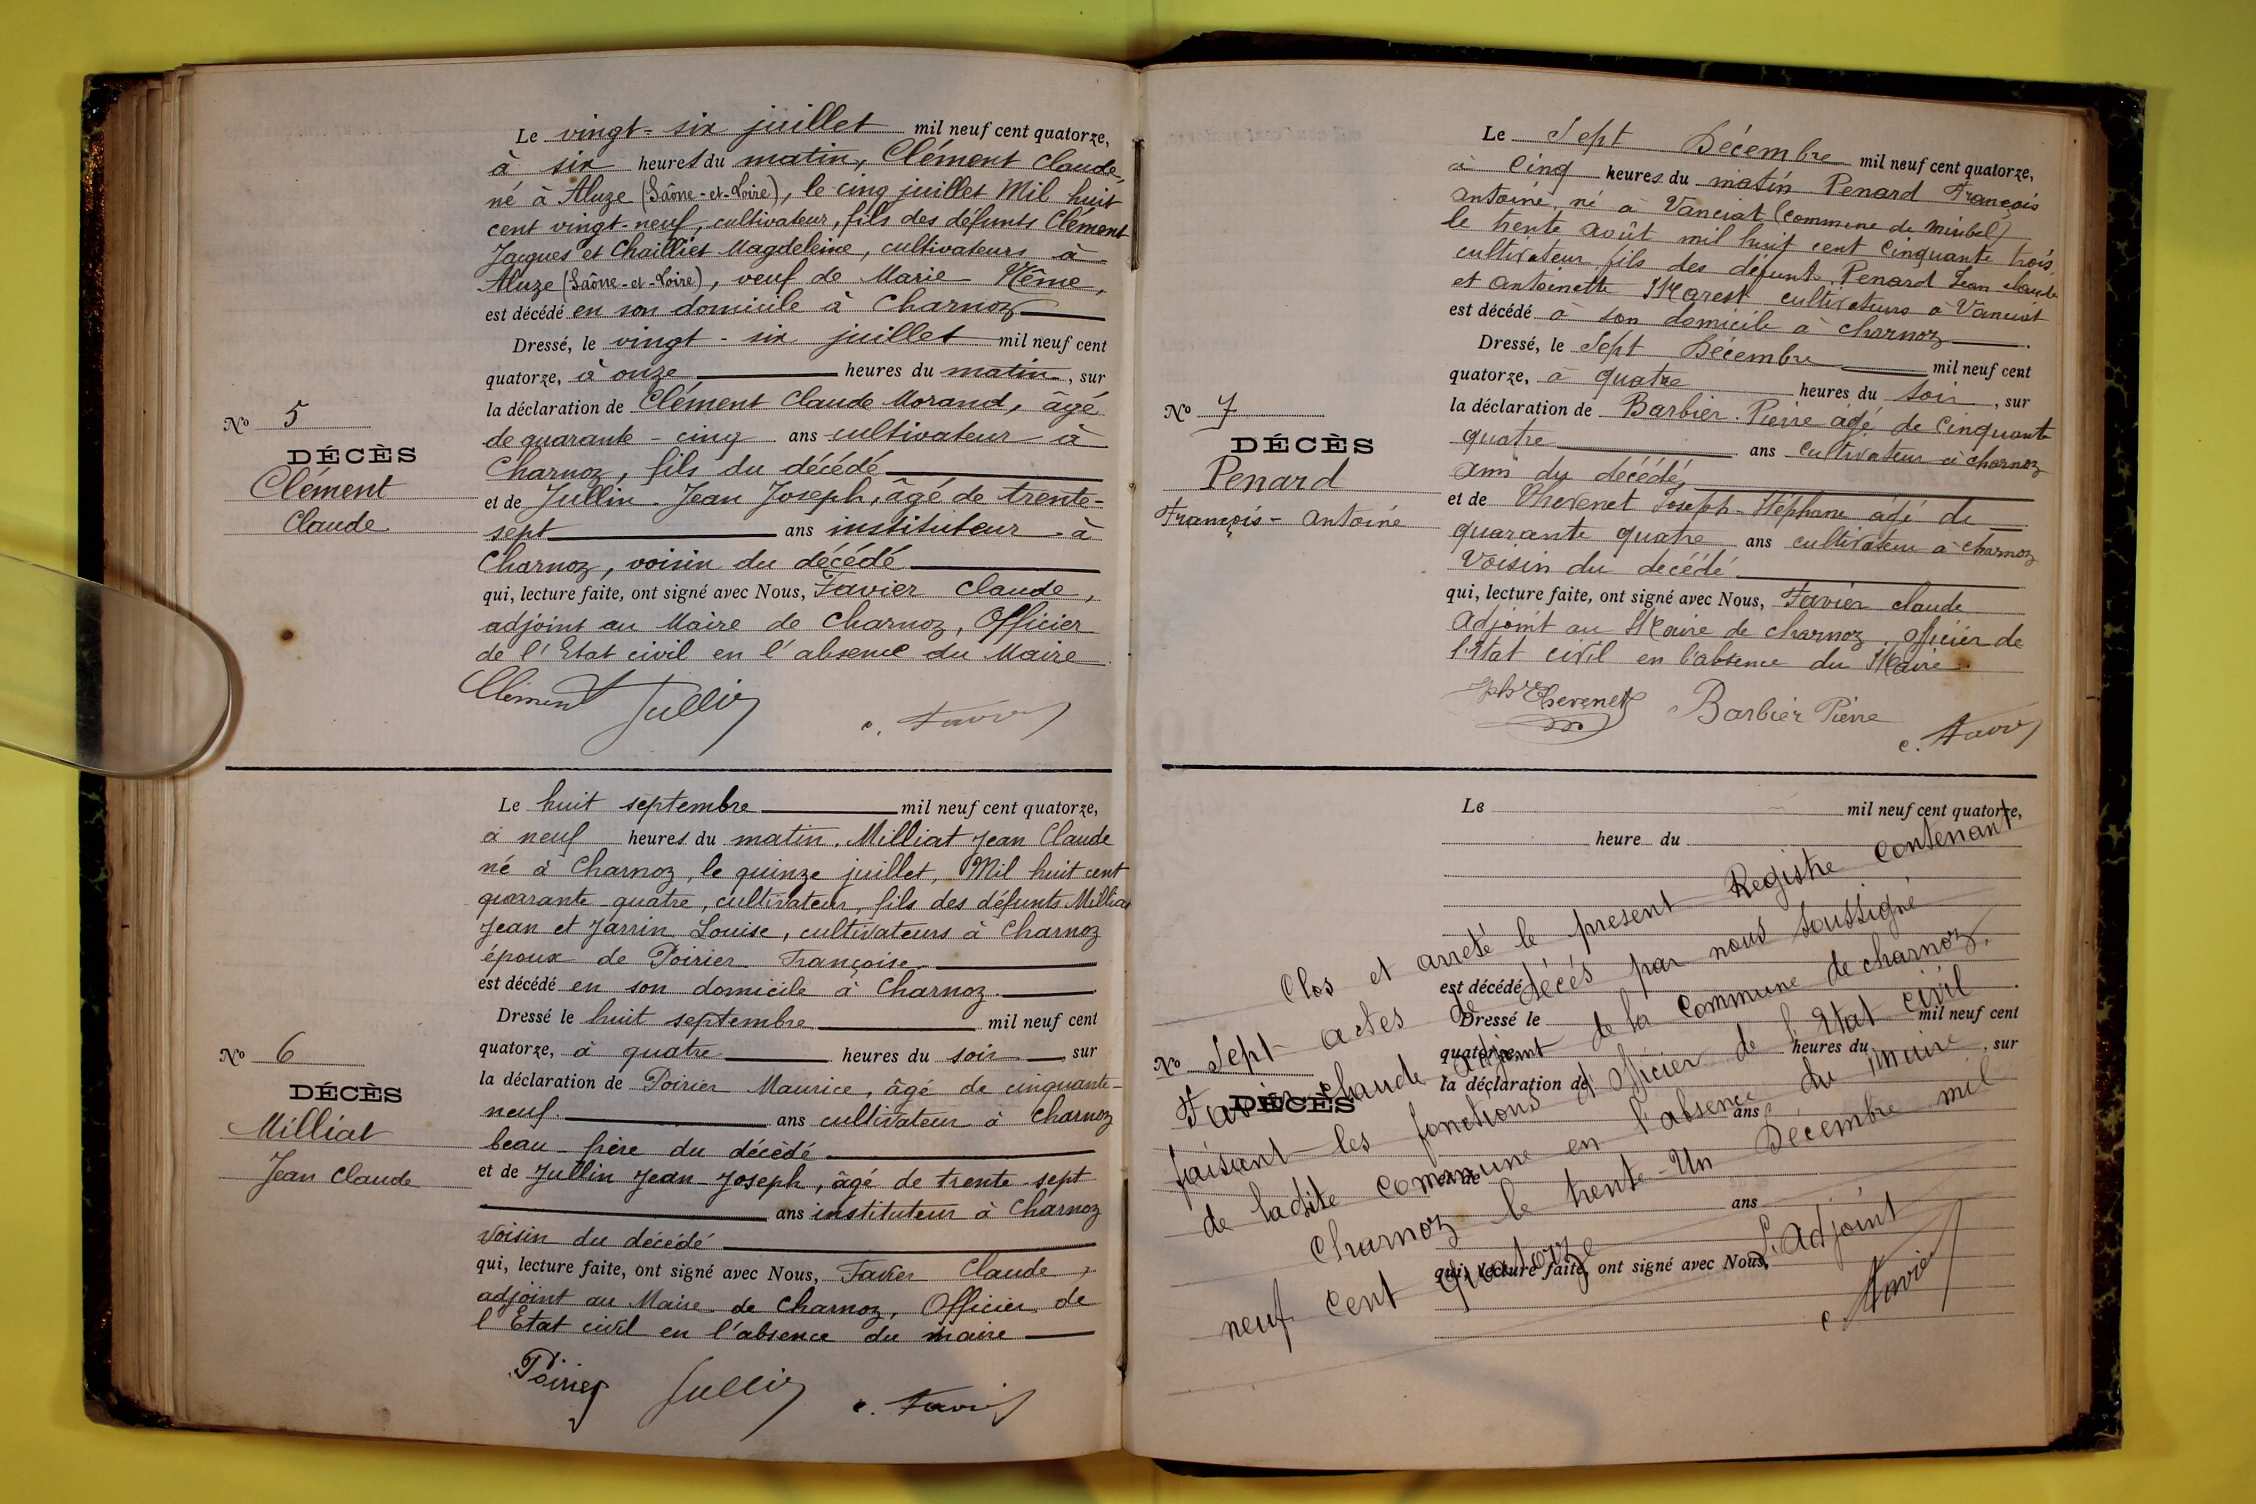 Le vingt-six juillet mil neuf cent quatorze,
à six heures du matin, Clément Claude,
né à Aluze (Saône-et-Loire), le cinq juillet Mil huit
cent vingt-neuf, cultivateur, fils des défunts Clément
Jacques et Chailliet Magdeleine, cultivateurs à
Aluze (Saône-et-Loire), veuf de Marie
est décédé en son domicile à Charnoz
Dressé, le vingt-six juillet mil neuf cent
quatorze, à onze heures du matin, sur
la déclaration de Clément Claude Morand, âgé
de quarante-cinq ans cultivateur à
Charnoz, fils du décédé
et de Jullin Jean Joseph, âgé de trente-
sept ans instituteur à
Charnoz, voisin du décédé
qui, lecture faite, ont signé avec Nous, Favier Claude,
adjoint au Maire de Charnoz, Officier
de l'Etat civil en l'absence du Maire.
Clément Jullin C. Favier
No 5
DÉCÈS
Clément
Claude
Le huit septembre mil neuf cent quatorze,
à neuf heures du matin, Milliat Jean Claude
né à Charnoz, le quinze juillet, Mil huit cent
quarante-quatre, cultivateur, fils des défunts Milliat
Jean et Jarrin Louise, cultivateurs à Charnoz
époux de Poirier Françoise
est décédé en son domicile à Charnoz.
Dressé le huit septembre mil neuf cent
quatorze, à quatre heures du soir, sur
la déclaration de Poirier Maurice, âgé de cinquante-
neuf ans cultivateur à Charnoz
beau-frère du décédé
et de Jullin Jean-Joseph, âgé de trente sept
ans instituteur à Charnoz
voisin du décédé
qui, lecture faite, ont signé avec Nous, Favier Claude,
adjoint au Maire de Charnoz, Officier de
l'Etat civil en l'absence du maire
Poirier Jullin C. Favier
No 6
DÉCÈS
Milliat
Jean Claude
Le Sept Décembre mil neuf cent quatorze,
à Cinq heures du matin Penard François
antoine, né à Vanciat (commune de Miribel)
le trente août mil huit cent cinquante trois
cultivateur fils des défunts Penard Jean claude
et antoinette cultivateurs à Vanciat
est décédé à son domicile à charnoz
Dressé, le Sept Décembre mil neuf cent
quatorze, à quatre heures du soir, sur
la déclaration de Barbier Pierre agé de cinquante
quatre ans cultivateur à charnoz
ami du décédé,
et de Thevenet Joseph-Stéphane agé de
quarante quatre ans cultivateur à charnoz
Voisin du décédé
qui, lecture faite, ont signé avec Nous, Favier claude
Adjoint au Maire de charnoz, officier de
l'Etat civil en l'absence du Maire.
Thevenet Barbier Pierre C. Favier
No 7
DÉCÈS
Penard
François-antoine
Le mil neuf cent quatorze,
heure du
est décédé
Dressé le mil neuf cent
quatorze, heures du , sur
la déclaration de
ans
et de
ans
qui, lecture faite, ont signé avec Nous,
No
DÉCÈS
Clos et arreté le present Registre contenant
Sept actes de décés par nous soussigné
Favier claude adjoint de la Commune de charnoz,
faisant les fonctions d'officier de l'Etat civil
de ladite commune en l'absence du maire
Charnoz le trente-Un Décembre mil
neuf cent quatorze
L'adjoint
C Favier